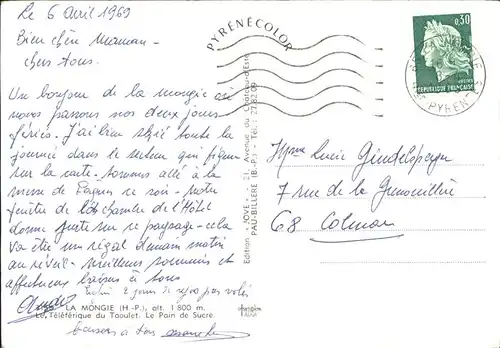 Le 6 avril 1969
Bien chère maman -
chers tous.
Un bonjour de la mongie où
nous passons nos deux jours
fériés. J'ai bien skié toute la
journée dans le secteur qui figure
sur la carte. sommes allé à la
messe de Pâques ce soir - notre
fenêtre de la chambre de l'Hôtel
donne juste sur ce paysage - cela
va être un régal demain matin
au réveil - meilleurs souvenirs et
affectueux baisers à tous
2 jours de repos pas volés
André
LA MONGIE (H.-P.), alt. 1 800 m.
Le Téléférique du Taoulet. Le Pain de Sucre.
baisers à tous
Edition « JOVE » - 21, Avenue du Château-d'Este
PAU-BILLERE (B.-P.) - Tél.: 27.82.09
PYRÉNÉCOLOR
0,30
REPUBLIQUE FRANÇAISE
PYREN
Mme Lucie
7 rue de la Grenouillère
68 Colmar